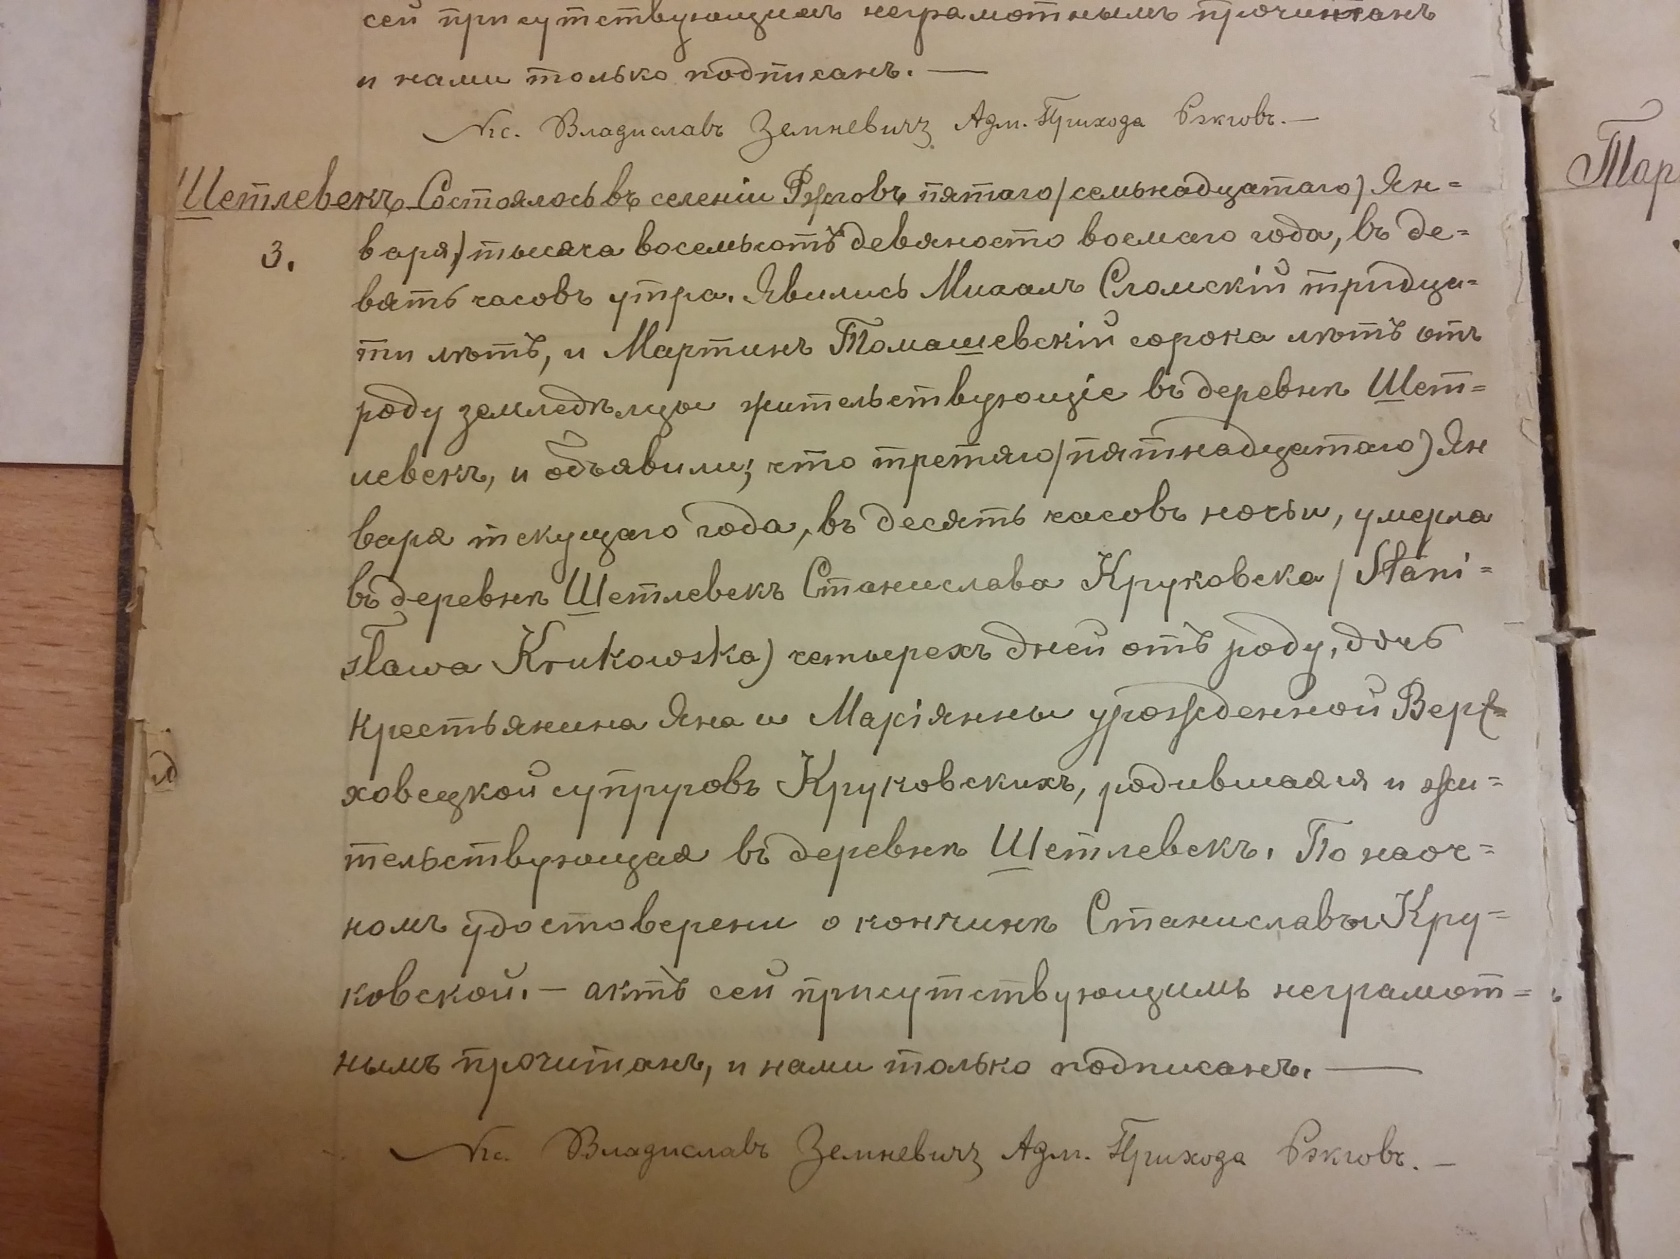 сей присутствующимъ неграмотнымъ прочитанъ
и нами только подписанъ. —
Кс. Владиславъ Земневичъ Адм. Прихода
Шетлевекъ Состоялось въ селеніи пятаго/семьнадцатаго) Ян=
3. варя,/тысяча восемьсотъ девяносто восмаго года, въ де=
вять часовъ утра. Явились Михалъ Сломскій тридца=
ти лѣтъ, и Мартинъ Томашевскій сорока лѣтъ отъ
роду земледѣльцы жительствующіе въ деревнѣ Шет=
левекъ, и объявили; что третяго/пятнадцатаго) Ян
варя текущаго года, въ десять часовъ ночьи, умерла
въ деревнѣ Шетлевекъ Станислава Круковска/Stani=
sława Krukowska) четырехъ дней отъ роду, дочь
крестьянина Яна и Маріянны урожденной Вер
ховецкой супруговъ Круковскихъ, родившаяся и жи=
тельствующая въ деревнѣ Шетлевекъ. По наоч=
номъ удостоверени о кончинѣ Станиславы Кру=
ковской. — актъ сей присутствующимъ неграмот=
нымъ прочитанъ, и нами только подписанъ. —
Кс. Владиславъ Земневичъ Адм. Прихода
Тар